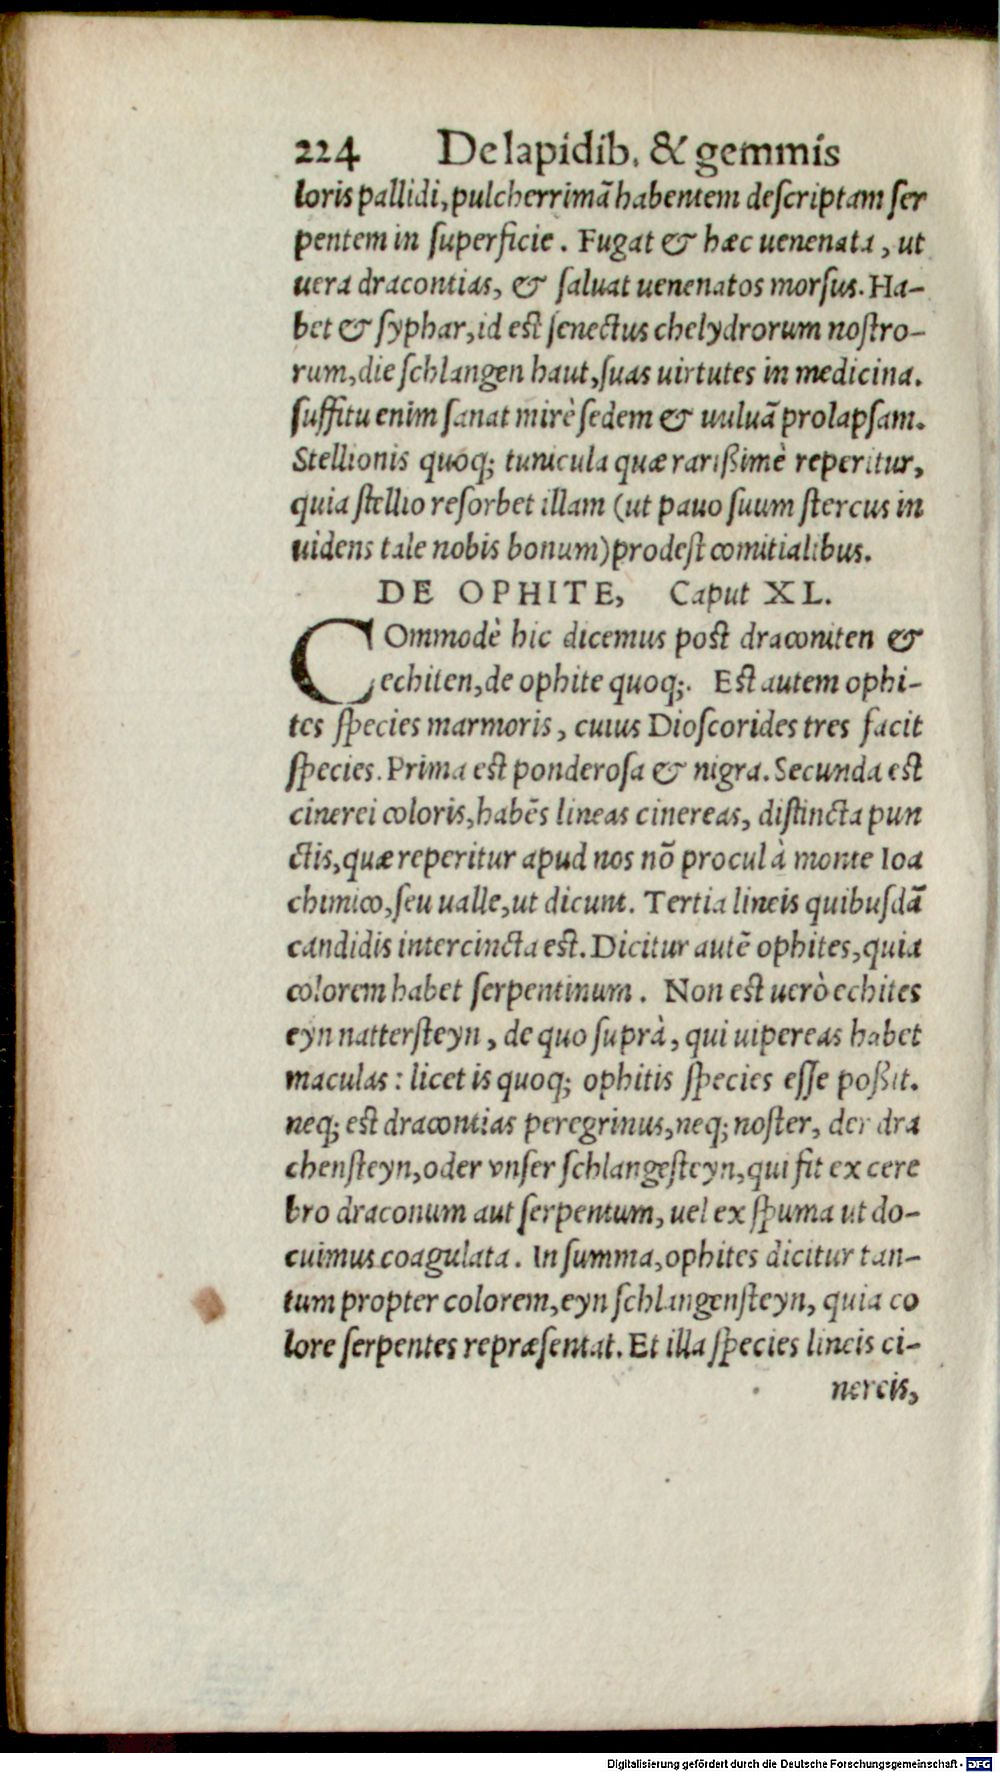 224 De lapidib. & gemmis
loris pallidi, pulcherrimā habentem deſcriptam ſer
pentem in ſuperficie. Fugat & hæc uenenata, ut
uera dracontias, & ſaluat uenenatos morſus. Ha-
bet & ſyphar, id eſt ſenectus chelydrorum noſtro-
rum, die ſchlangen haut, ſuas uirtutes in medicina.
ſuffitu enim ſanat mirè ſedem & uuluā prolapſam.
Stellionis quoq; tunicula quæ rariſsimè reperitur,
quia ſtellio reſorbet illam (ut pauo ſuum ſtercus in
uidens tale nobis bonum) prodeſt comitialibus.
DE OPHITE, Caput XL.
COmmodè hic dicemus poſt draconiten &
echiten, de ophite quoq;. Eſt autem ophi-
tes ſpecies marmoris, cuius Dioſcorides tres facit
ſpecies. Prima eſt ponderoſa & nigra. Secunda eſt
cinerei coloris, habēs lineas cinereas, diſtincta pun
ctis, quæ reperitur apud nos nō procul à monte Ioa
chimico, ſeu ualle, ut dicunt. Tertia lineis quibuſdā
candidis intercincta eſt. Dicitur autē ophites, quia
colorem habet ſerpentinum. Non eſt uerò echites
eyn natterſteyn, de quo ſuprà, qui uipereas habet
maculas: licet is quoq; ophitis ſpecies eſſe poſsit.
neq; eſt dracontias peregrinus, neq; noſter, der dra
chenſteyn, oder vnſer ſchlangeſteyn, qui fit ex cere
bro draconum aut ſerpentum, uel ex ſpuma ut do-
cuimus coagulata. In ſumma, ophites dicitur tan-
tum propter colorem, eyn ſchlangenſteyn, quia co
lore ſerpentes repræſentat. Et illa ſpecies lineis ci-
nereis,
Digitalisierung gefördert durch die Deutsche Forschungsgemeinschaft - DFG